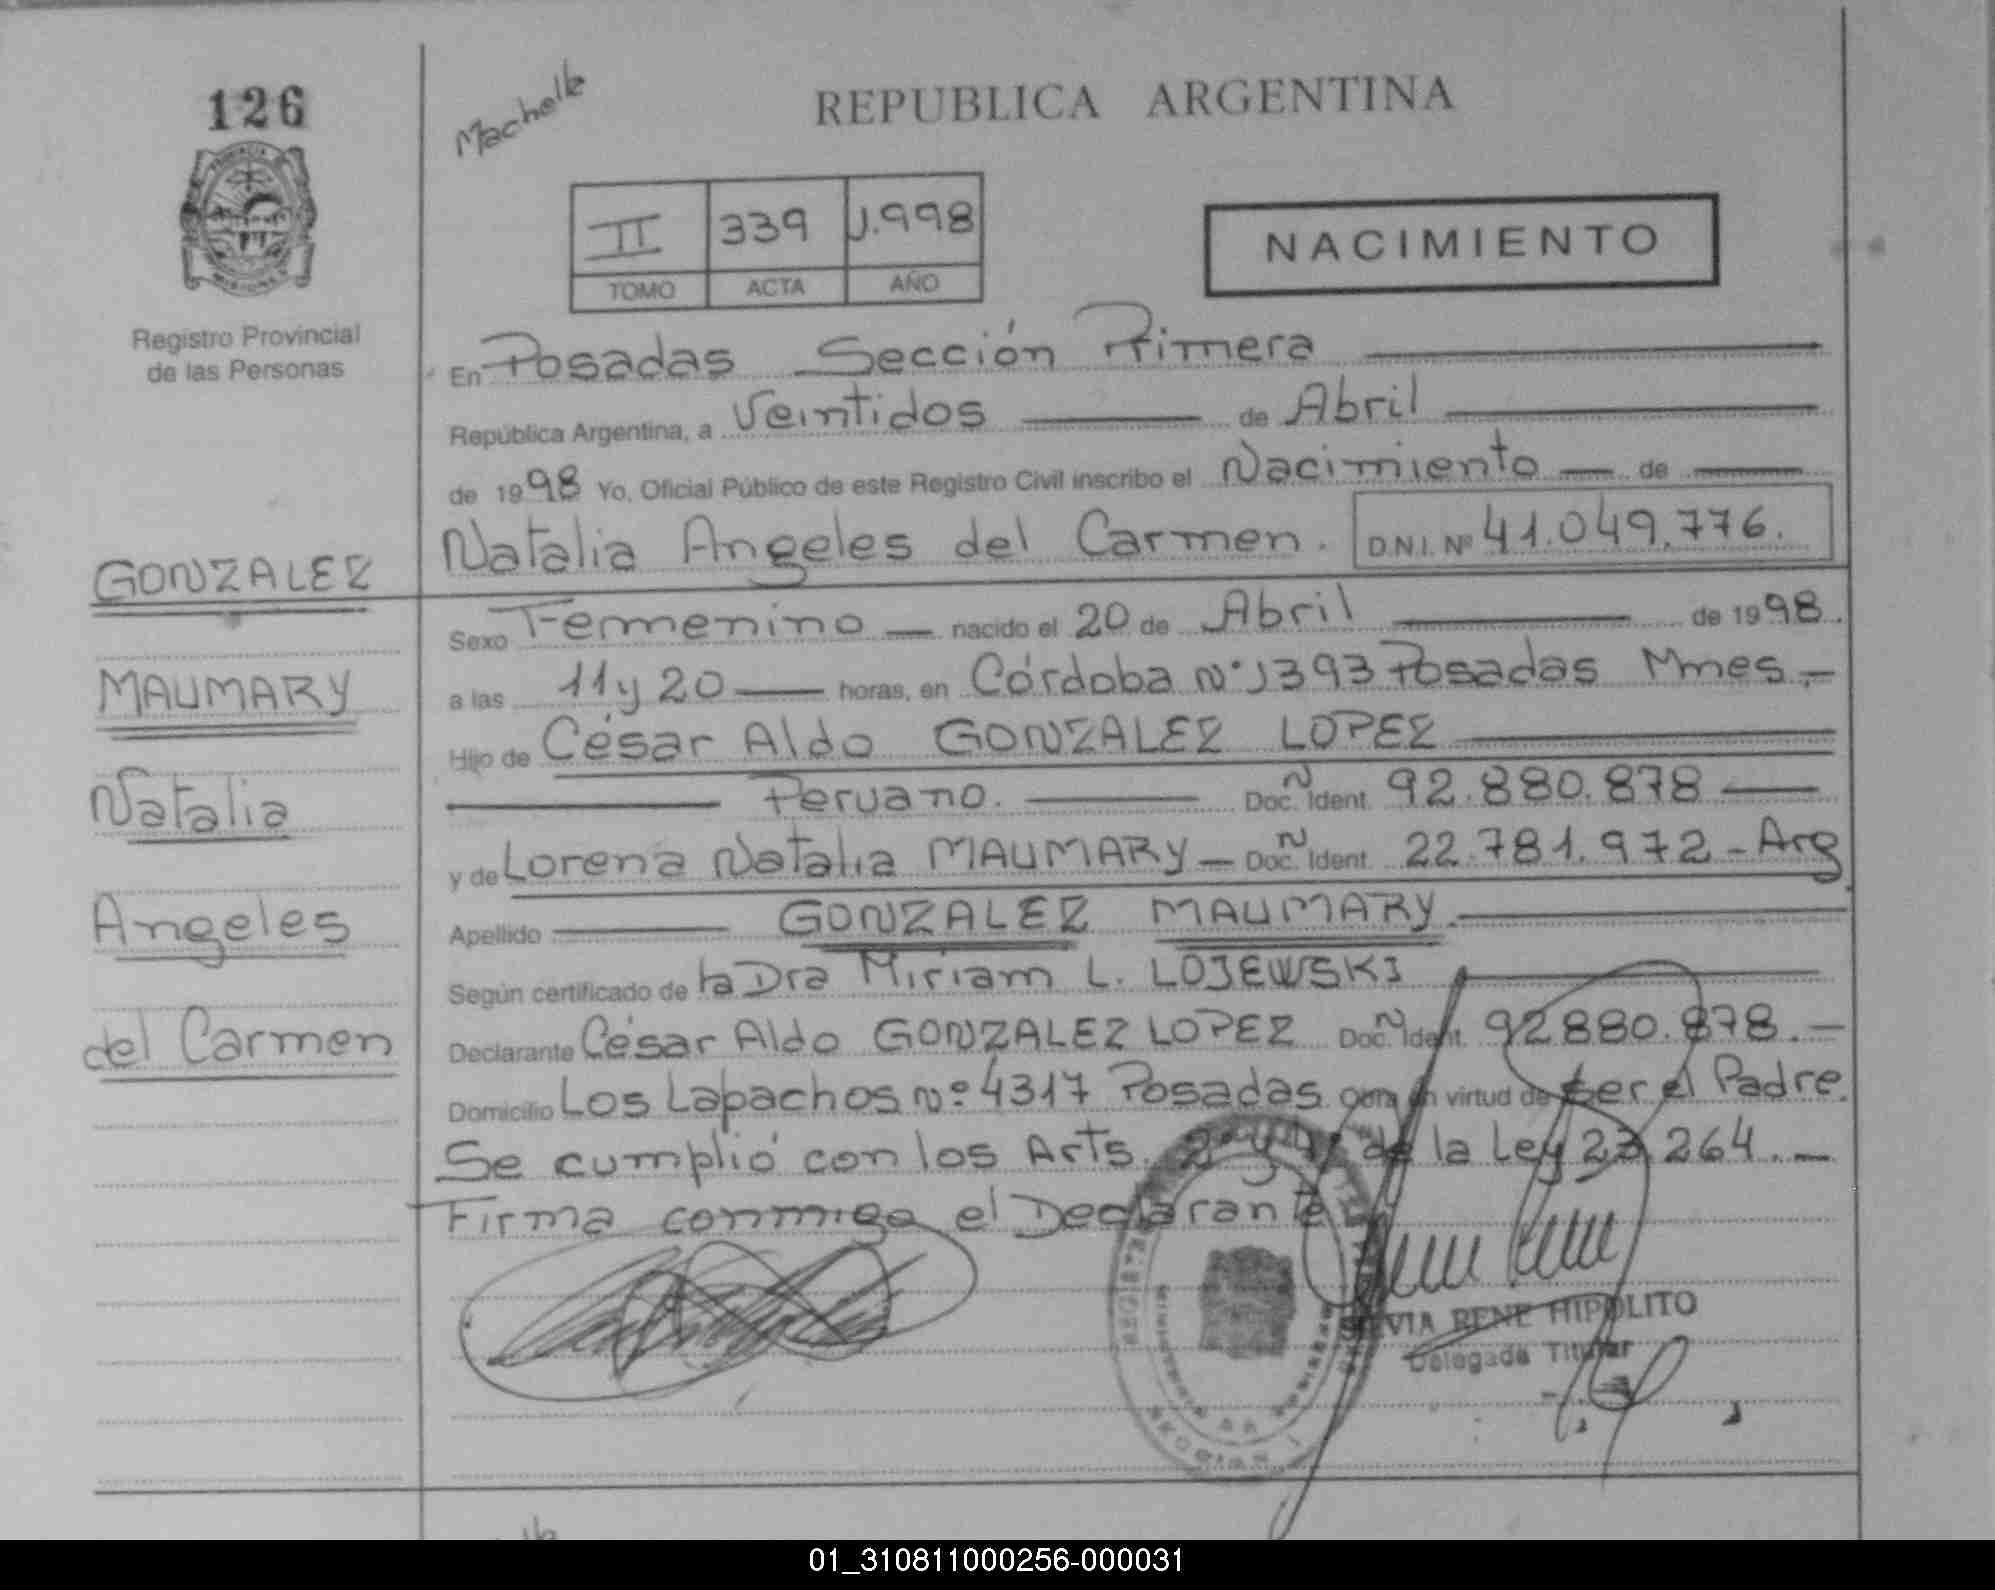 126
Machelle
REPUBLICA ARGENTINA
II 339 1.998
TOMO ACTA AÑO
NACIMIENTO
Registro Provincial
de las Personas
En Posadas Sección Primera
República Argentina, a Veintidos de Abril
de 1998 Yo, Oficial Público de este Registro Civil inscribo el Nacimiento de
Natalia Angeles del Carmen. D.N.I. Nº 41.049.776.
Sexo Femenino nacido el 20 de Abril de 1998.
a las 11 y 20 horas, en Córdoba Nº 1393 Posadas Mnes.-
Hijo de César Aldo GONZALEZ LOPEZ
Peruano. Doc. Ñ Ident. 92.880.878
y de Lorena Natalia MAUMARY - Doc. Ñ Ident. 22.781.972 - Arg
Apellido GONZALEZ MAUMARY.
Según certificado de la Dra Miriam L. LOJEWSKI
Declarante César Aldo GONZALEZ LOPEZ Doc. Ñ Ident. 92880.878.-
Domicilio Los Lapachos Nº 4317 Posadas Obra en virtud de ser el Padre.
Se cumplió con los Arts. 2º y 4º de la Ley 23.264.-
Firma conmigo el Declarante
GONZALEZ
MAUMARY
Natalia
Angeles
del Carmen
VIA RENE HIPOLITO
Delegada Titular
01_310811000256-000031